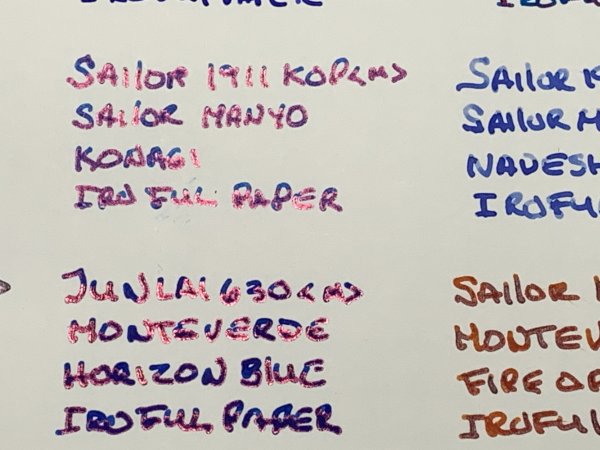 SAilOR 1911 KOP<M>
SAilOR MANYO
KONAGI
IROFUL PAPER
JUNLAI 630<M>
MONTEVERDE
HORIZON BLUE
IROFUL PAPER
SAilOR
SAilOR
IROFUL
SAilOR
FIRE